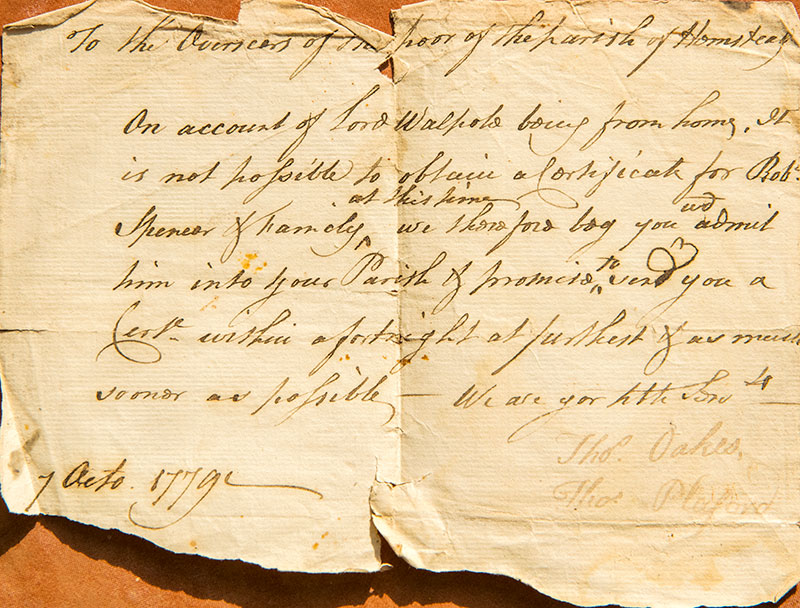 To the Overseers of the poor of the parish of Hemstead
On account of Lord Walpole being from home, It
is not possible to obtain a Certificate for Robt.
at this time
Spencer & Family, we therefore beg you wd admit
him into your Parish & promise to send you a
Certe. within a fortnight at furthest & as much
sooner as possible — We are yor hble Servts
Thos. Oakes.
7 Octo. 1779
Thos Playford